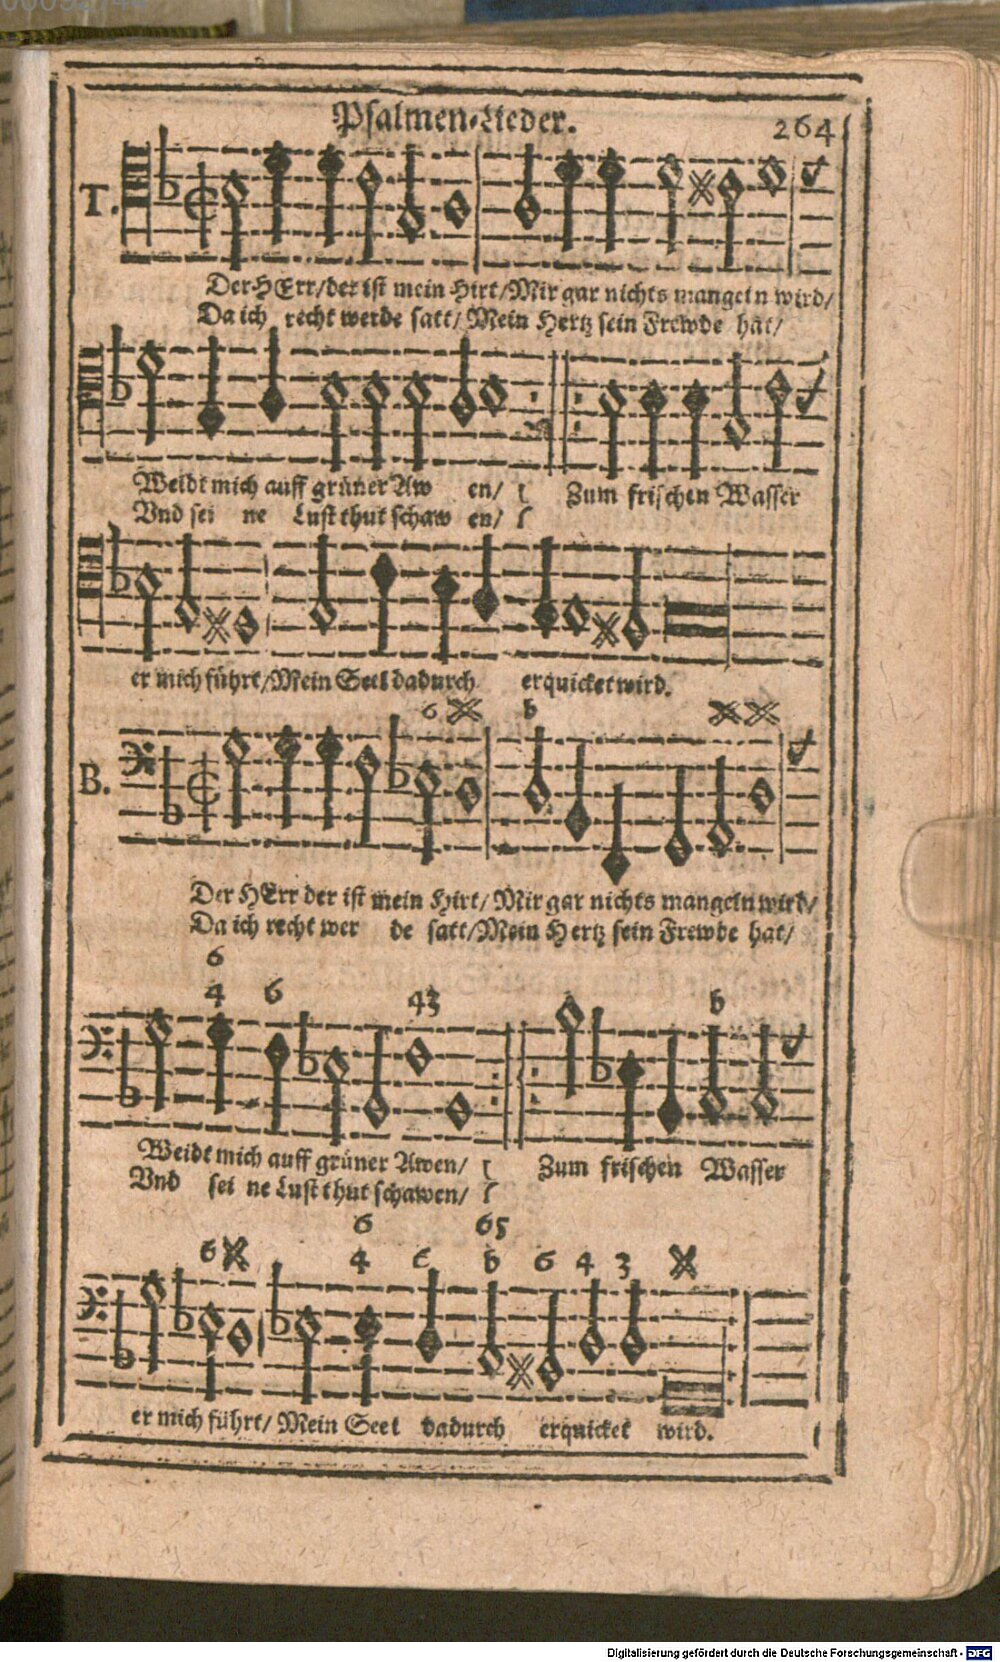 Psalmen-Lieder.
264
T.
Der HErr/der ist mein Hirt/Mir gar nichts mangeln wird/
Da ich recht werde satt/Mein Hertz sein Frewde hat/
Weidt mich auff grüner Aw en/ Zum frischen Wasser
Vnd sei ne Lust thut schaw en/
er mich führt/Mein Seel dadurch erquicket wird.
6 b
B.
Der HErr der ist mein Hirt/Mir gar nichts mangeln wird/
Da ich recht wer de satt/Mein Hertz sein Frewde hat/
6
4 6 43 b
Weidt mich auff grüner Awen/ Zum frischen Wasser
Vnd sei ne Lust thut schawen/
6 65
6 4 6 b 6 4 3
er mich führt/Mein Seel dadurch erquicket wird.
Digitalisierung gefördert durch die Deutsche Forschungsgemeinschaft - DFG